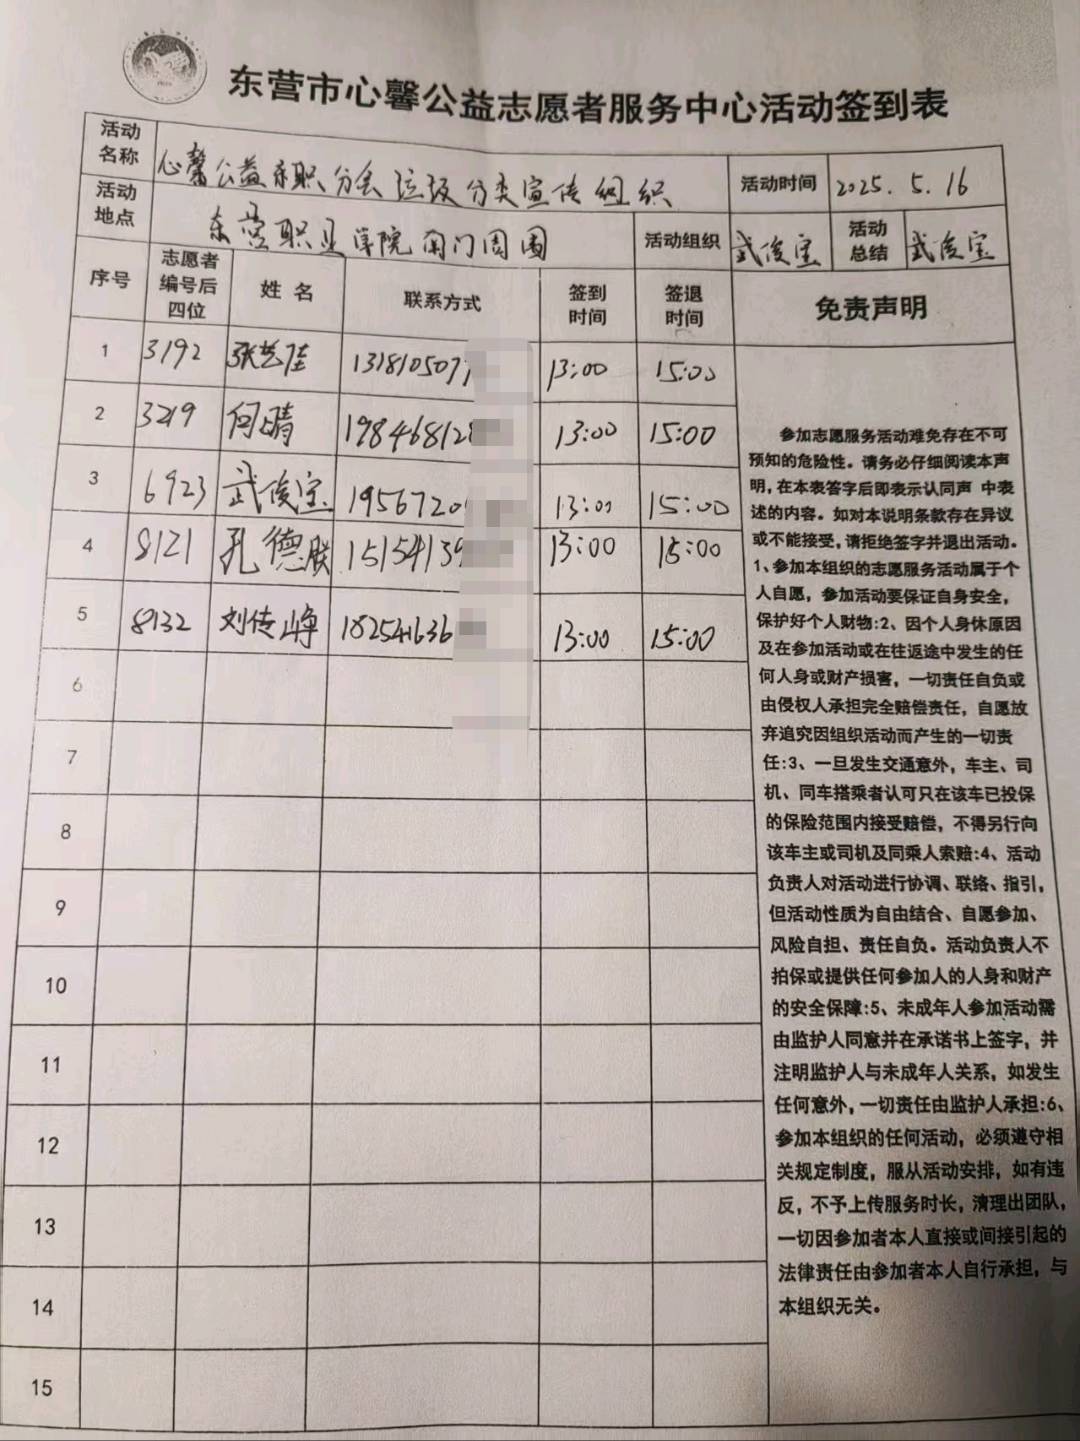 东营市心馨公益志愿者服务中心活动签到表
活动名称 心馨公益东职分会垃圾分类宣传组织 活动时间 2025.5.16
活动地点 东营职业学院南门周围 活动组织 武俊宝 活动总结 武俊宝
序号 志愿者编号后四位 姓名 联系方式 签到时间 签退时间 免责声明
1 3192 张艺佳 1318105077 13:00 15:00
2 3219 何晴 198468128 13:00 15:00
3 6923 武俊宝 1956720 13:00 15:00
4 8121 孔德朕 15154139 13:00 15:00
5 8132 刘传峥 182541636 13:00 15:00
6
7
8
9
10
11
12
13
14
15
参加志愿服务活动难免存在不可
预知的危险性。请务必仔细阅读本声
明,在本表签字后即表示认同声 中表
述的内容。如对本说明条款存在异议
或不能接受,请拒绝签字并退出活动。
1、参加本组织的志愿服务活动属于个
人自愿,参加活动要保证自身安全,
保护好个人财物:2、因个人身体原因
及在参加活动或在往返途中发生的任
何人身或财产损害,一切责任自负或
由侵权人承担完全赔偿责任,自愿放
弃追究因组织活动而产生的一切责
任:3、一旦发生交通意外,车主、司
机、同车搭乘者认可只在该车已投保
的保险范围内接受赔偿,不得另行向
该车主或司机及同乘人索赔:4、活动
负责人对活动进行协调、联络、指引,
但活动性质为自由结合、自愿参加、
风险自担、责任自负。活动负责人不
拍保或提供任何参加人的人身和财产
的安全保障:5、未成年人参加活动需
由监护人同意并在承诺书上签字,并
注明监护人与未成年人关系,如发生
任何意外,一切责任由监护人承担:6、
参加本组织的任何活动,必须遵守相
关规定制度,服从活动安排,如有违
反,不予上传服务时长,清理出团队,
一切因参加者本人直接或间接引起的
法律责任由参加者本人自行承担,与
本组织无关。